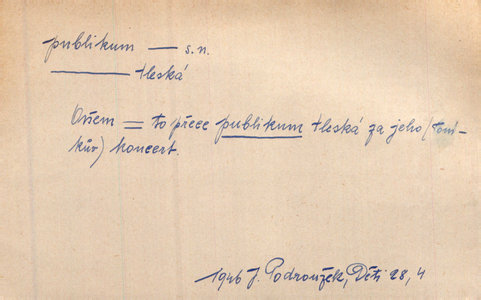 publikum — s.n.
——— tleská
Ovšem = to přece publikum tleská za jeho (toni-
kův) koncert.
1946 J. Podroužek, Děti 28, 4